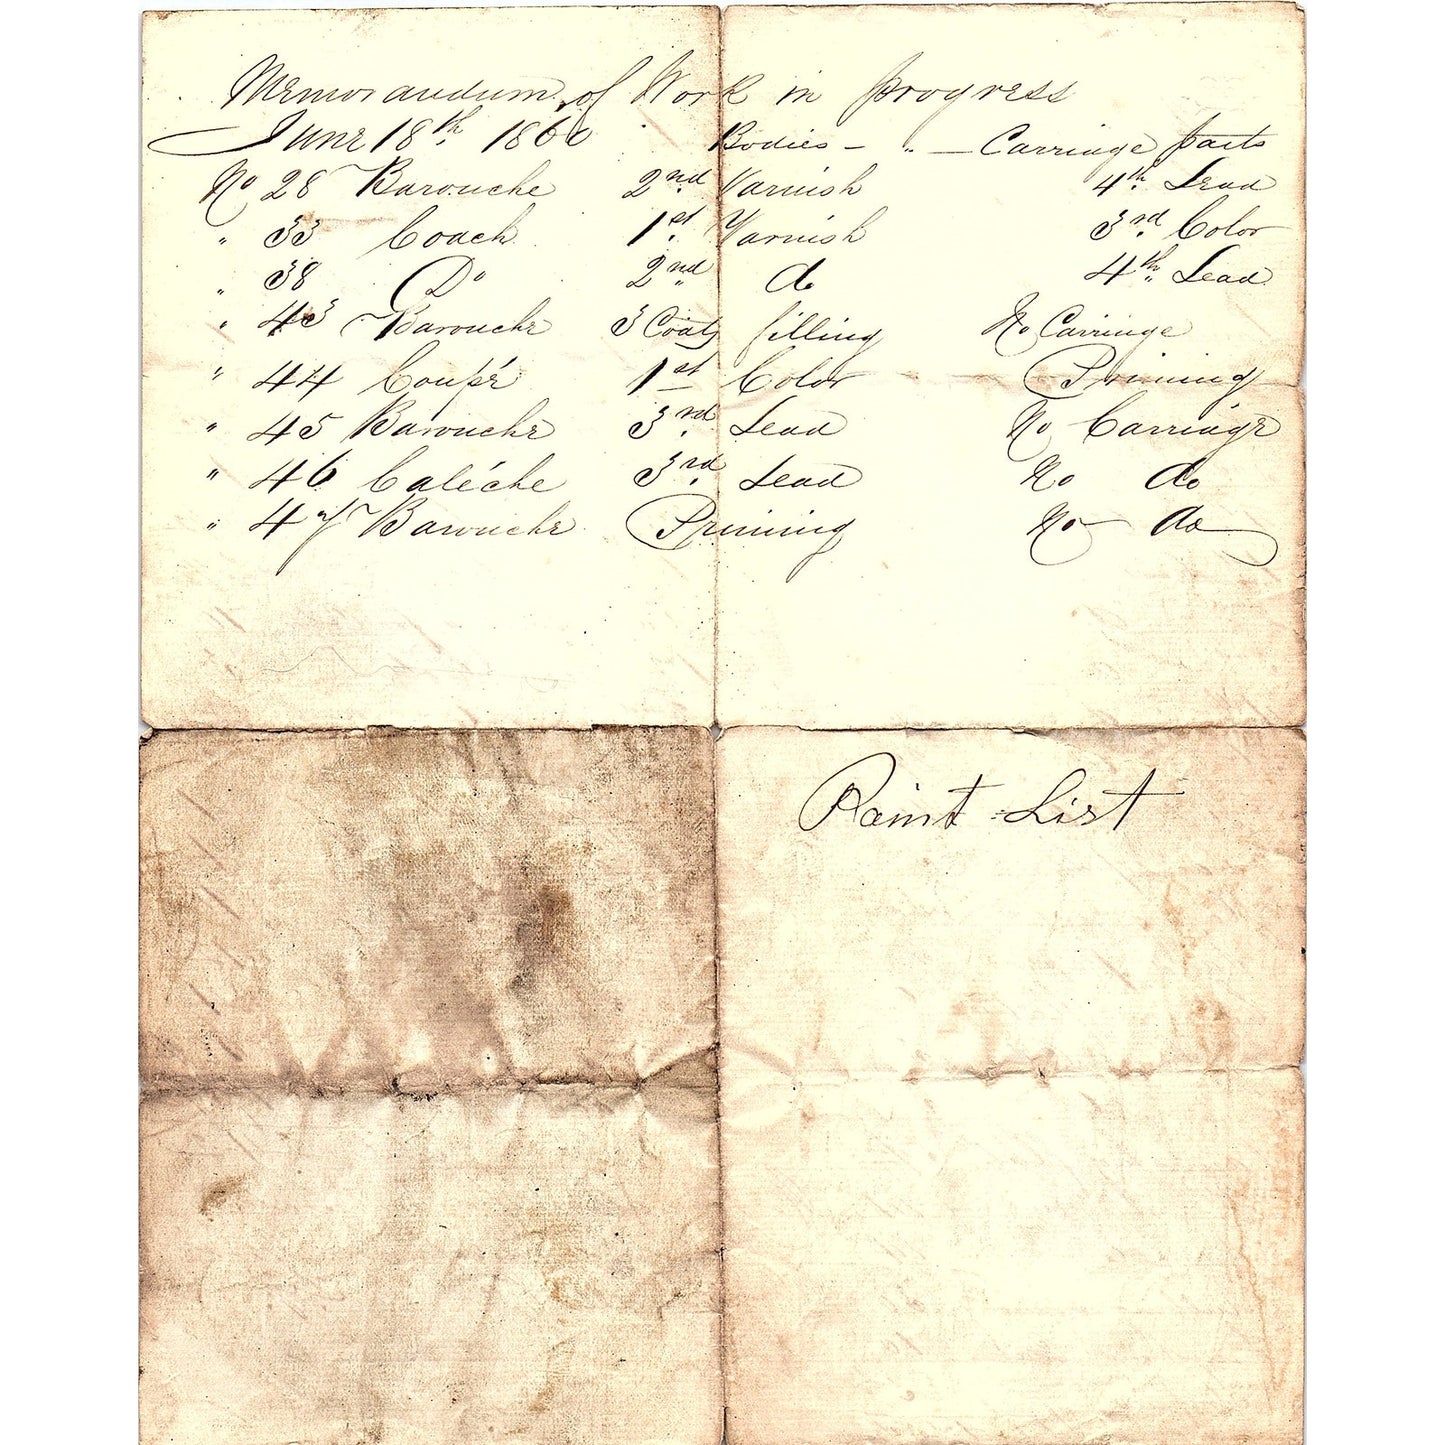 Memorandum of Work in progress
June 18th. 1860 Bodies - " - Carriage parts
No 28 Barouche 2nd Varnish 4th. Lead
" 33 Coach 1st. Varnish 3rd. Color
" 38 Do 2nd do 4th Lead
" 43 Barouche 3 Coats filling No Carriage
" 44 Coupé 1st Color Priming
" 45 Barouche 3rd. Lead No Carriage
" 46 Caléche 3rd. Lead No do
" 47 Barouche Priming No do
Paint List